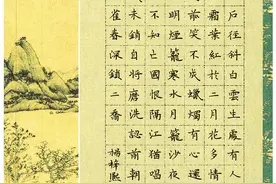 户径斜白雲生處有人
霜葉紅於二月花多情
前笑不成蠟燭有心還
明煙籠寒水月籠沙夜
不知亡國恨隔江猶唱
未銷自將磨洗認前朝
雀春深鎖二喬 楊梓熙